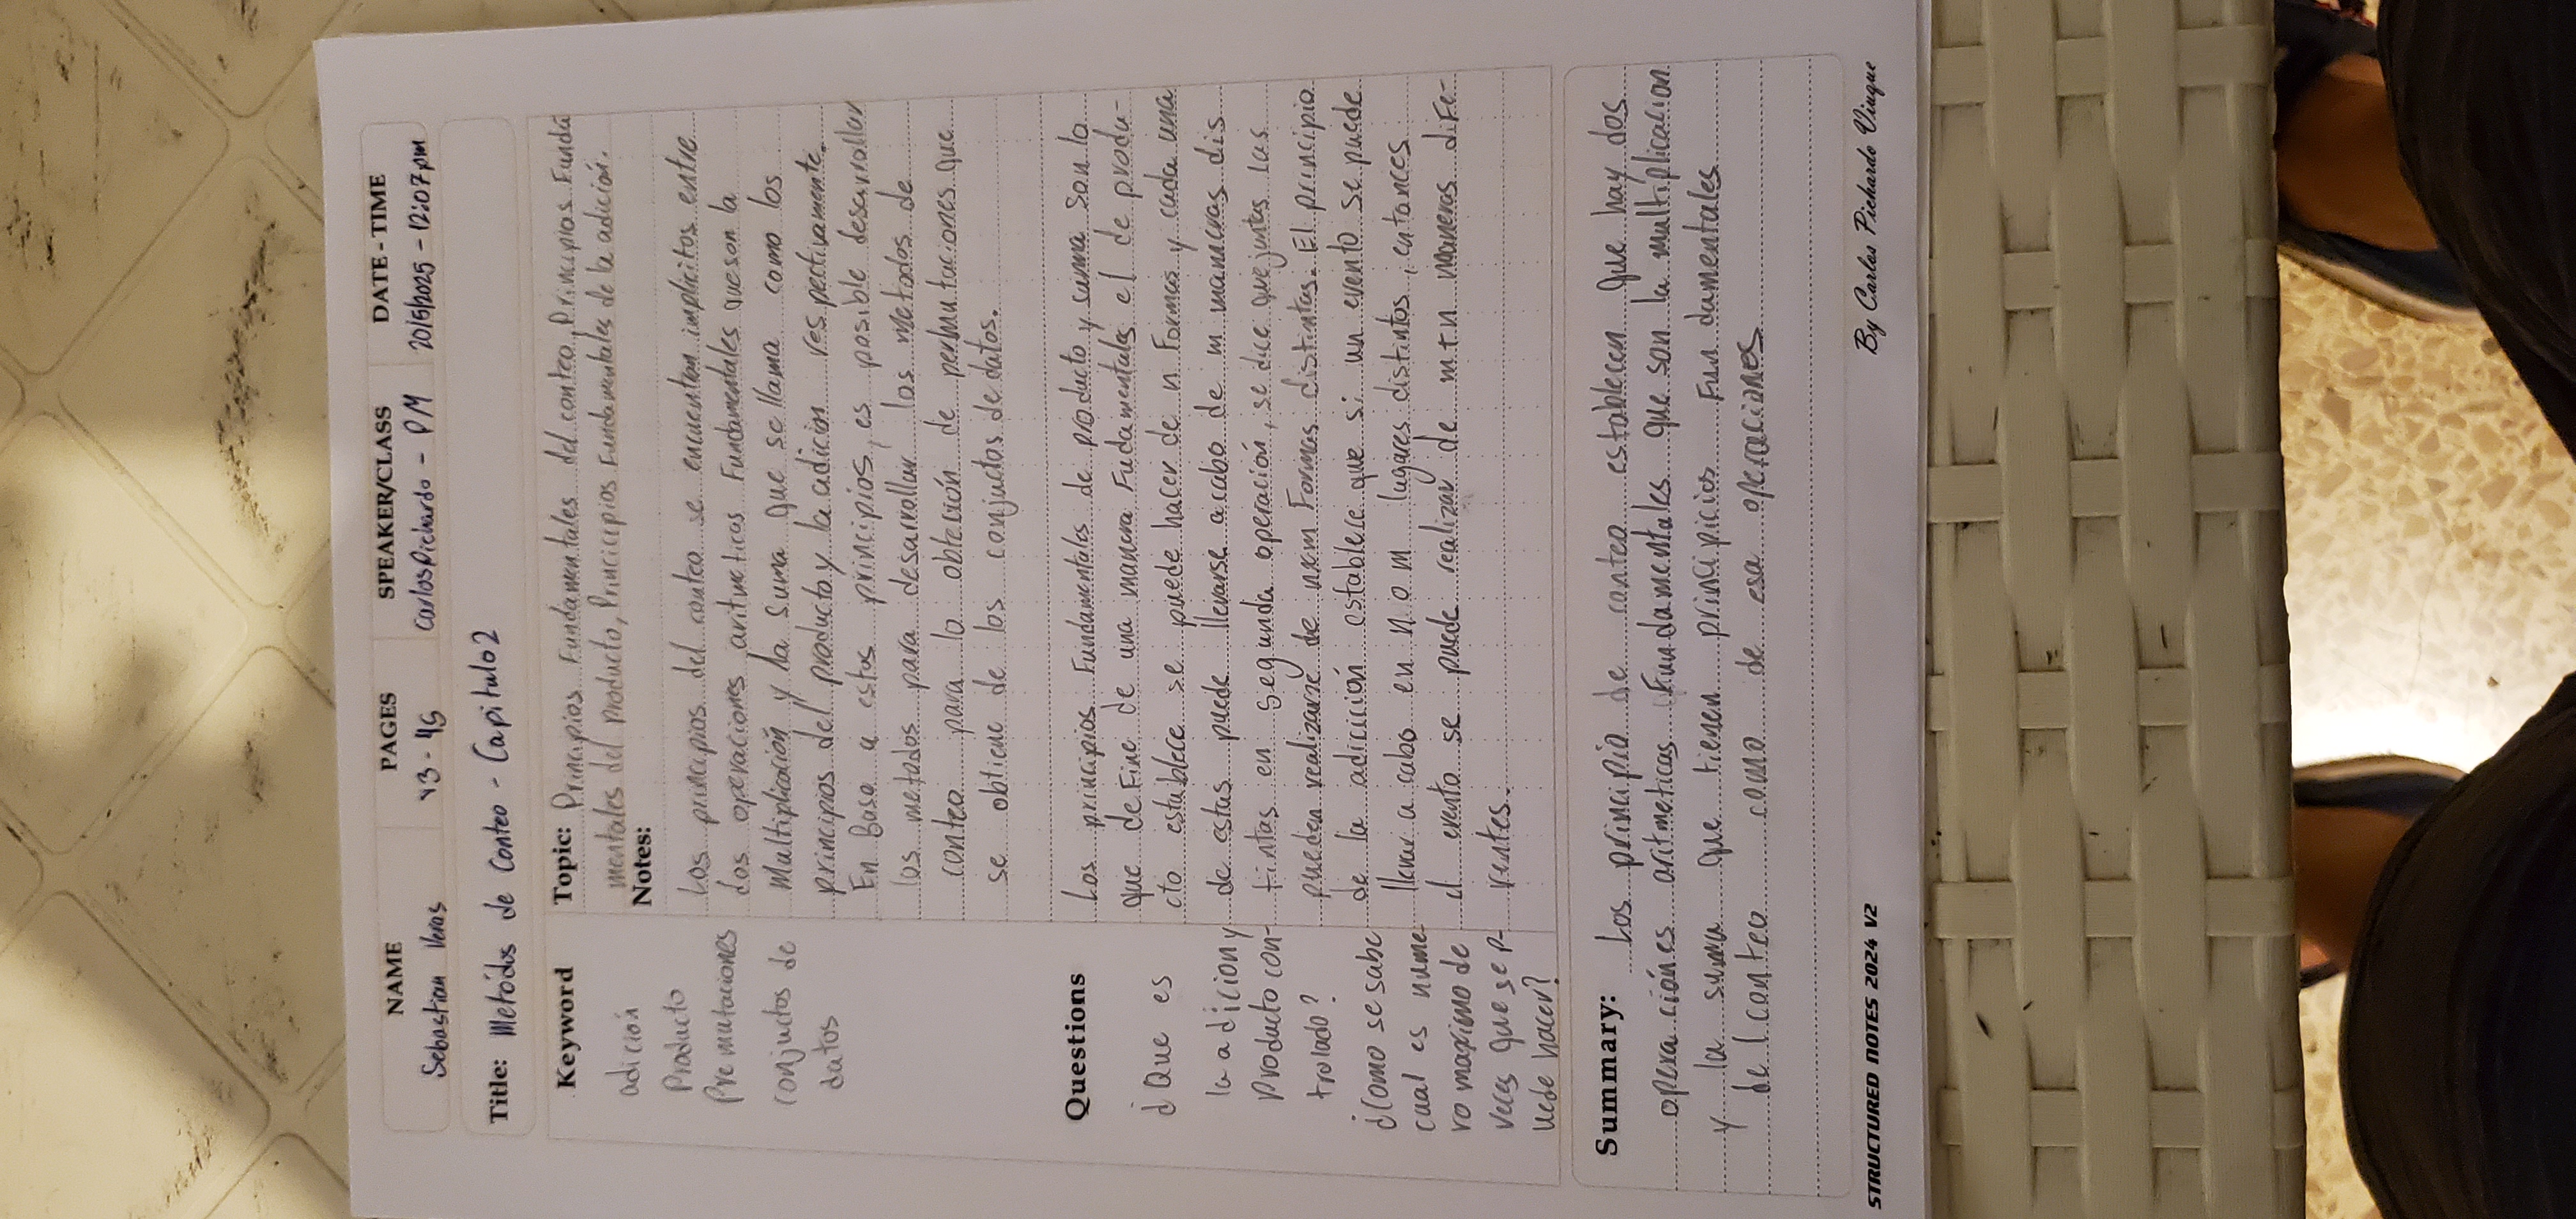 NAME PAGES SPEAKER/CLASS DATE - TIME
Sebastian Veras 43 - 45 Carlos Pichardo - PM 20/5/2025 - 12:07pm
Title: Metódos de Conteo - Capitulo 2
Keyword
adición
Producto
Premutaciones
conjuctos de
datos
Topic: Principios Fundamentales del conteo, Principios Funda
mentales del producto, Princicepios Fundamentales de la adición.
Notes:
Los principios del conteo se encuentran implicitos entre
dos operaciones aritmeticas Fundamentales que son la
Multiplicación y la Suma que se llama como los
principios del producto y la adición respectivamente.
En Base a estos principios, es posible desarrollar
los metodos para desarrollar los metodos de
conteo para lo obteción de permutaciones que
se obtiene de los conjuctos de datos.
Questions
¿Que es
la adicion y
Producto con-
trolado?
¿Como se sabe
cual es nume-
ro maximo de
veces que se p-
uede hacer?
Los principios Fundamentales de producto y suma Son lo
que deFine de una manera Fudamentales el de produ-
cto establece se puede hacer de n Formas y cada una
de estas puede llevarse acabo de m maneras dis
tintas en segunda operación, se dice que juntas las
pueden realizarse de nxm Formas distintas. El principio
de la adicición establece que si un evento se puede
llevar a cabo en n o m lugares distintos, entonces
el evento se puede realizar de m+n maneras diFe-
rentes.
Summary: Los principio de conteo establecen que hay dos
operaciónes aritmeticas Fundamentales que son la multiplicacion
y la suma que tienen principicios Fundamentales
del conteo como de esa operaciones
STRUCTURED NOTES 2024 V2 By Carlos Pichardo Viuque